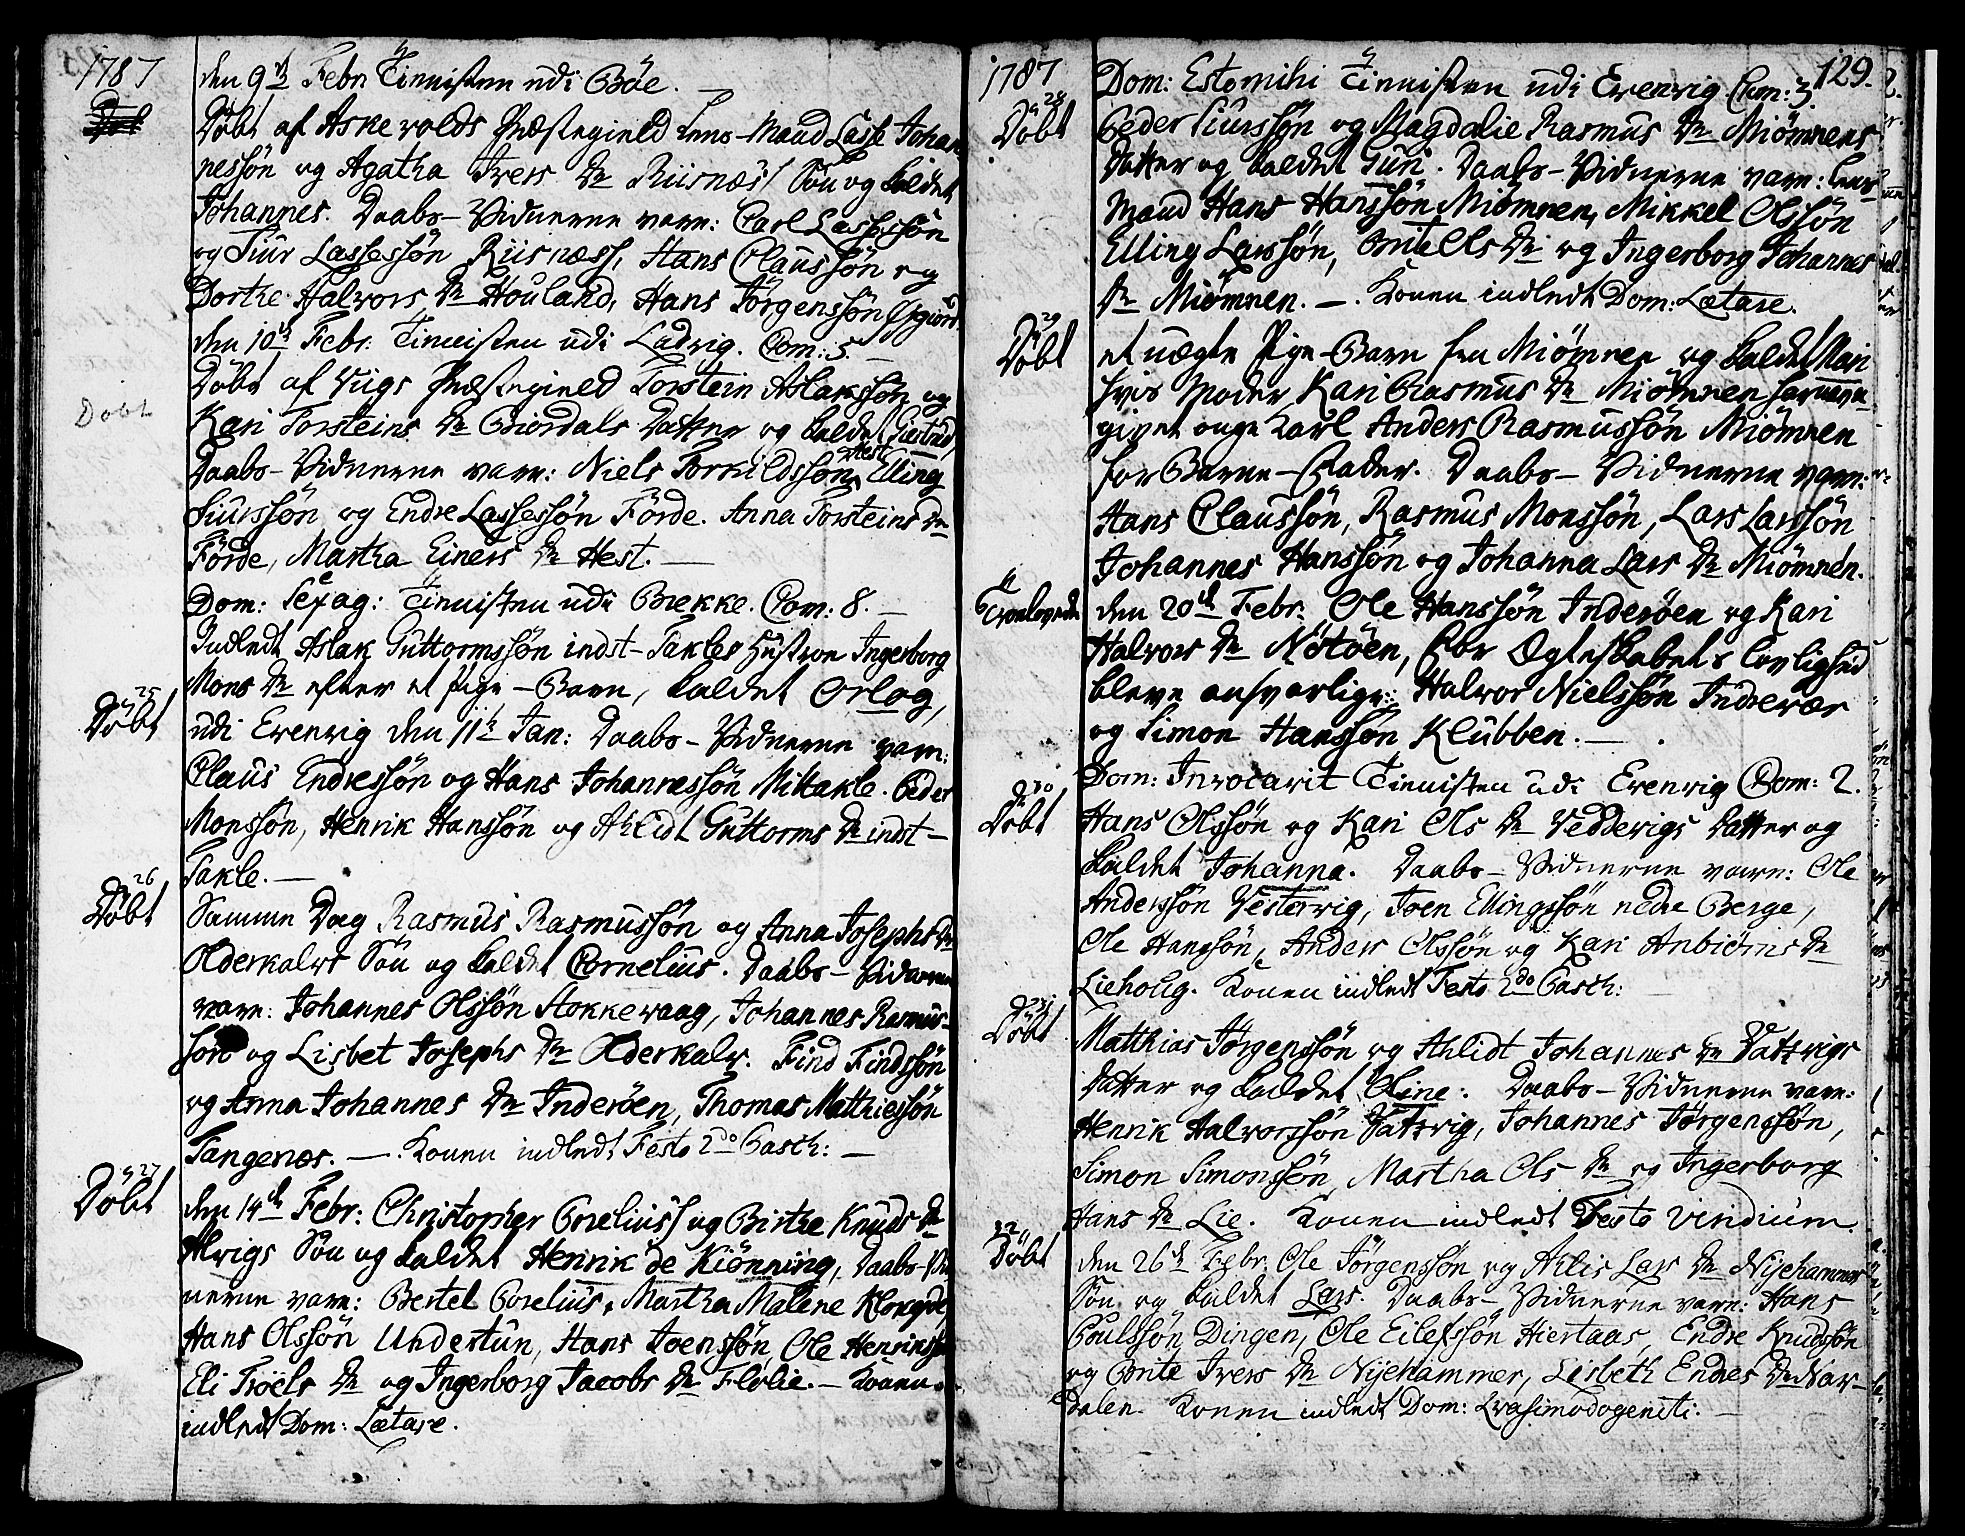 1787
den 9de Febr. Tienisten udi Bøe. —
Døbt af Askevolds Præstegield Lens-Mand Lasse Johan-
nessøn og Agatha Ivers Dr Riisnæs Søn og kaldet
Johannes. Daabs-Vidnerne vare: Carl Lassessøn
og Siur Lassessøn Riisnæss, Hans Claussøn og
Dorthe Halvors Dr Houland, Hans Jørgenssøn
den 10de Febr: Tienisten udi Ladvig. Com: 5 —
Døbt
Døbt af Viigs Præstegield Torstein Aslakssøn og
Kari Torsteins Dr Biordals Datter og kaldet Giertrud,
Daabs-Vidnerne vare: Niels Torkildssøn Hest, Elling
Siurssøn og Endre Lassessøn Förde. Anna Torsteins Dr
Förde, Martha Einers Dr Hest. —
Dom: Sexag: Tienisten udi Brekke. Com: 8. —
Indledt Aslak Guttormssøn indst-Takles Hustroe Ingerborg
Mons Dr efter et Pige-Barn, kaldet Orlog,
25
Døbt
udi Evenvig den 11te Jan: Daabs-Vidnerne vare:
Claus Endressøn og Hans Johannessøn Mittakle. Peder
Monssøn, Henrik Hanssøn og Ahlidt Guttorms Dr indst-
Takle. —
26
Døbt
Samme Dag Rasmus Rasmussøn og Anna Josephs Dr
Olderkalvs Søn og kaldet Cornelius. Daabs-Vidnerne
vare: Johannes Olssøn Stokkevaag, Johannes Rasmus-
søn og Lisbet Josephs Dr Olderkalv. Find Findssøn
og Anna Johannes Dr Inderöen, Thomas Mathiessøn
Tangenes. — . Konen indledt Festo 2do Pasch: —
27
Døbt
den 14de Febr: Christopher Corelius og Birthe Knuds Dr
Alvigs Søn og kaldet Henrik de Kiönning, Daabs-Vid-
nerne vare: Bertel Corelius, Martha Malene
Hans Olssøn Undertun, Hans Joenssøn Ole
Eli Tröels Dr og Ingerborg Jacobs Dr Flølie. — Konen
indledt Dom: Lætare.
129.
1787
Dom: Estomihi Tienisten udi Evenvig Com: 3.
28
Døbt
Peder Siurssøn og Magdalie Rasmus Dr Miömnens
Datter og kaldet Guri. Daabs-Vidnerne vare: Lens-
Mand Hans Hanssøn Miömnen, Mikkel Olssøn
Elling Larssøn, Brite Ells Dr og Ingerborg Johannes
Dr Miömnen. — . Konen indledt Dom: Lætare.
29
Døbt
et uægte Pige-Barn fra Miömnen og kaldet Mari
hvis Moder Kari Rasmus Dr Miömnen
givet unge Karl Anders Rasmussøn Miömnen
for Barne-Fader. Daabs-Vidnerne vare:
Hans Claussøn, Rasmus Monssøn, Lars Larssøn
Johannes Hanssøn og Johanna Lars Dr Miömnen.
6 Trolovede
den 20de Febr: Ole Hanssøn Inderöen og Kari
Halvors Dr Nötöen, For Ægteskabets lovlighed
bleve ansvarlige: Halvor Nielssøn Indrevær
og Simon Hanssøn Klubben. —
Dom: Invocavit Tienisten udi Evenvig Com: 2.
30
Døbt
Hans Olssøn og Kari Ols Dr Vedvigs Datter og
kaldet Johanna. Daabs-Vidnerne vare: Ole
Anderssøn Vestervig, Joen Ellingssøn nedre Berge,
Ole Hanssøn, Anders Olssøn og Kari Anbiörns Dr
Liehoug. Konen indledt Festo 2do Pasch:
31
Døbt
Matthias Jörgenssøn og Ahlidt Johannes Dr Vatzvigs
Datter og kaldet Oline. Daabs-Vidnerne vare:
Henrik Halvorssøn Vatzvig, Johannes Jörgenssøn,
Simon Simonssøn, Martha Ols Dr og Ingerborg
Hans Dr Lie. Konen indledt Festo viridium.
32
Døbt
den 26de Febr: Ole Jörgenssøn og Ahlis Lars Dr Nijehammer
Søn og kaldet Lars. Daabs-Vidnerne vare: Hans
Poulssøn Dingen, Ole Eilefssøn Hiertaas, Endre Knudssøn
og Brite Ivers Dr Nijehammer, Lisbeth Endres Dr Nor-
dalen. Konen indledt Dom: Qvasimodogeniti. —